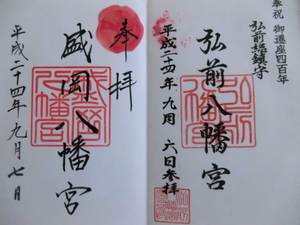 奉祝 御遷座四百年
弘前総鎮守
弘前八幡宮
弘前八幡宮
平成二十四年 九月 六日参拝
奉拝
盛岡八幡宮
盛岡八幡宮
平成二十四年九月七日